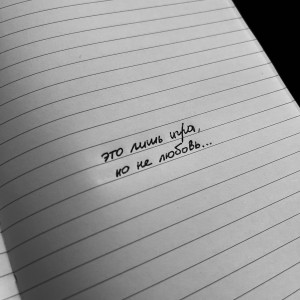 это лишь игра,
но не любовь...